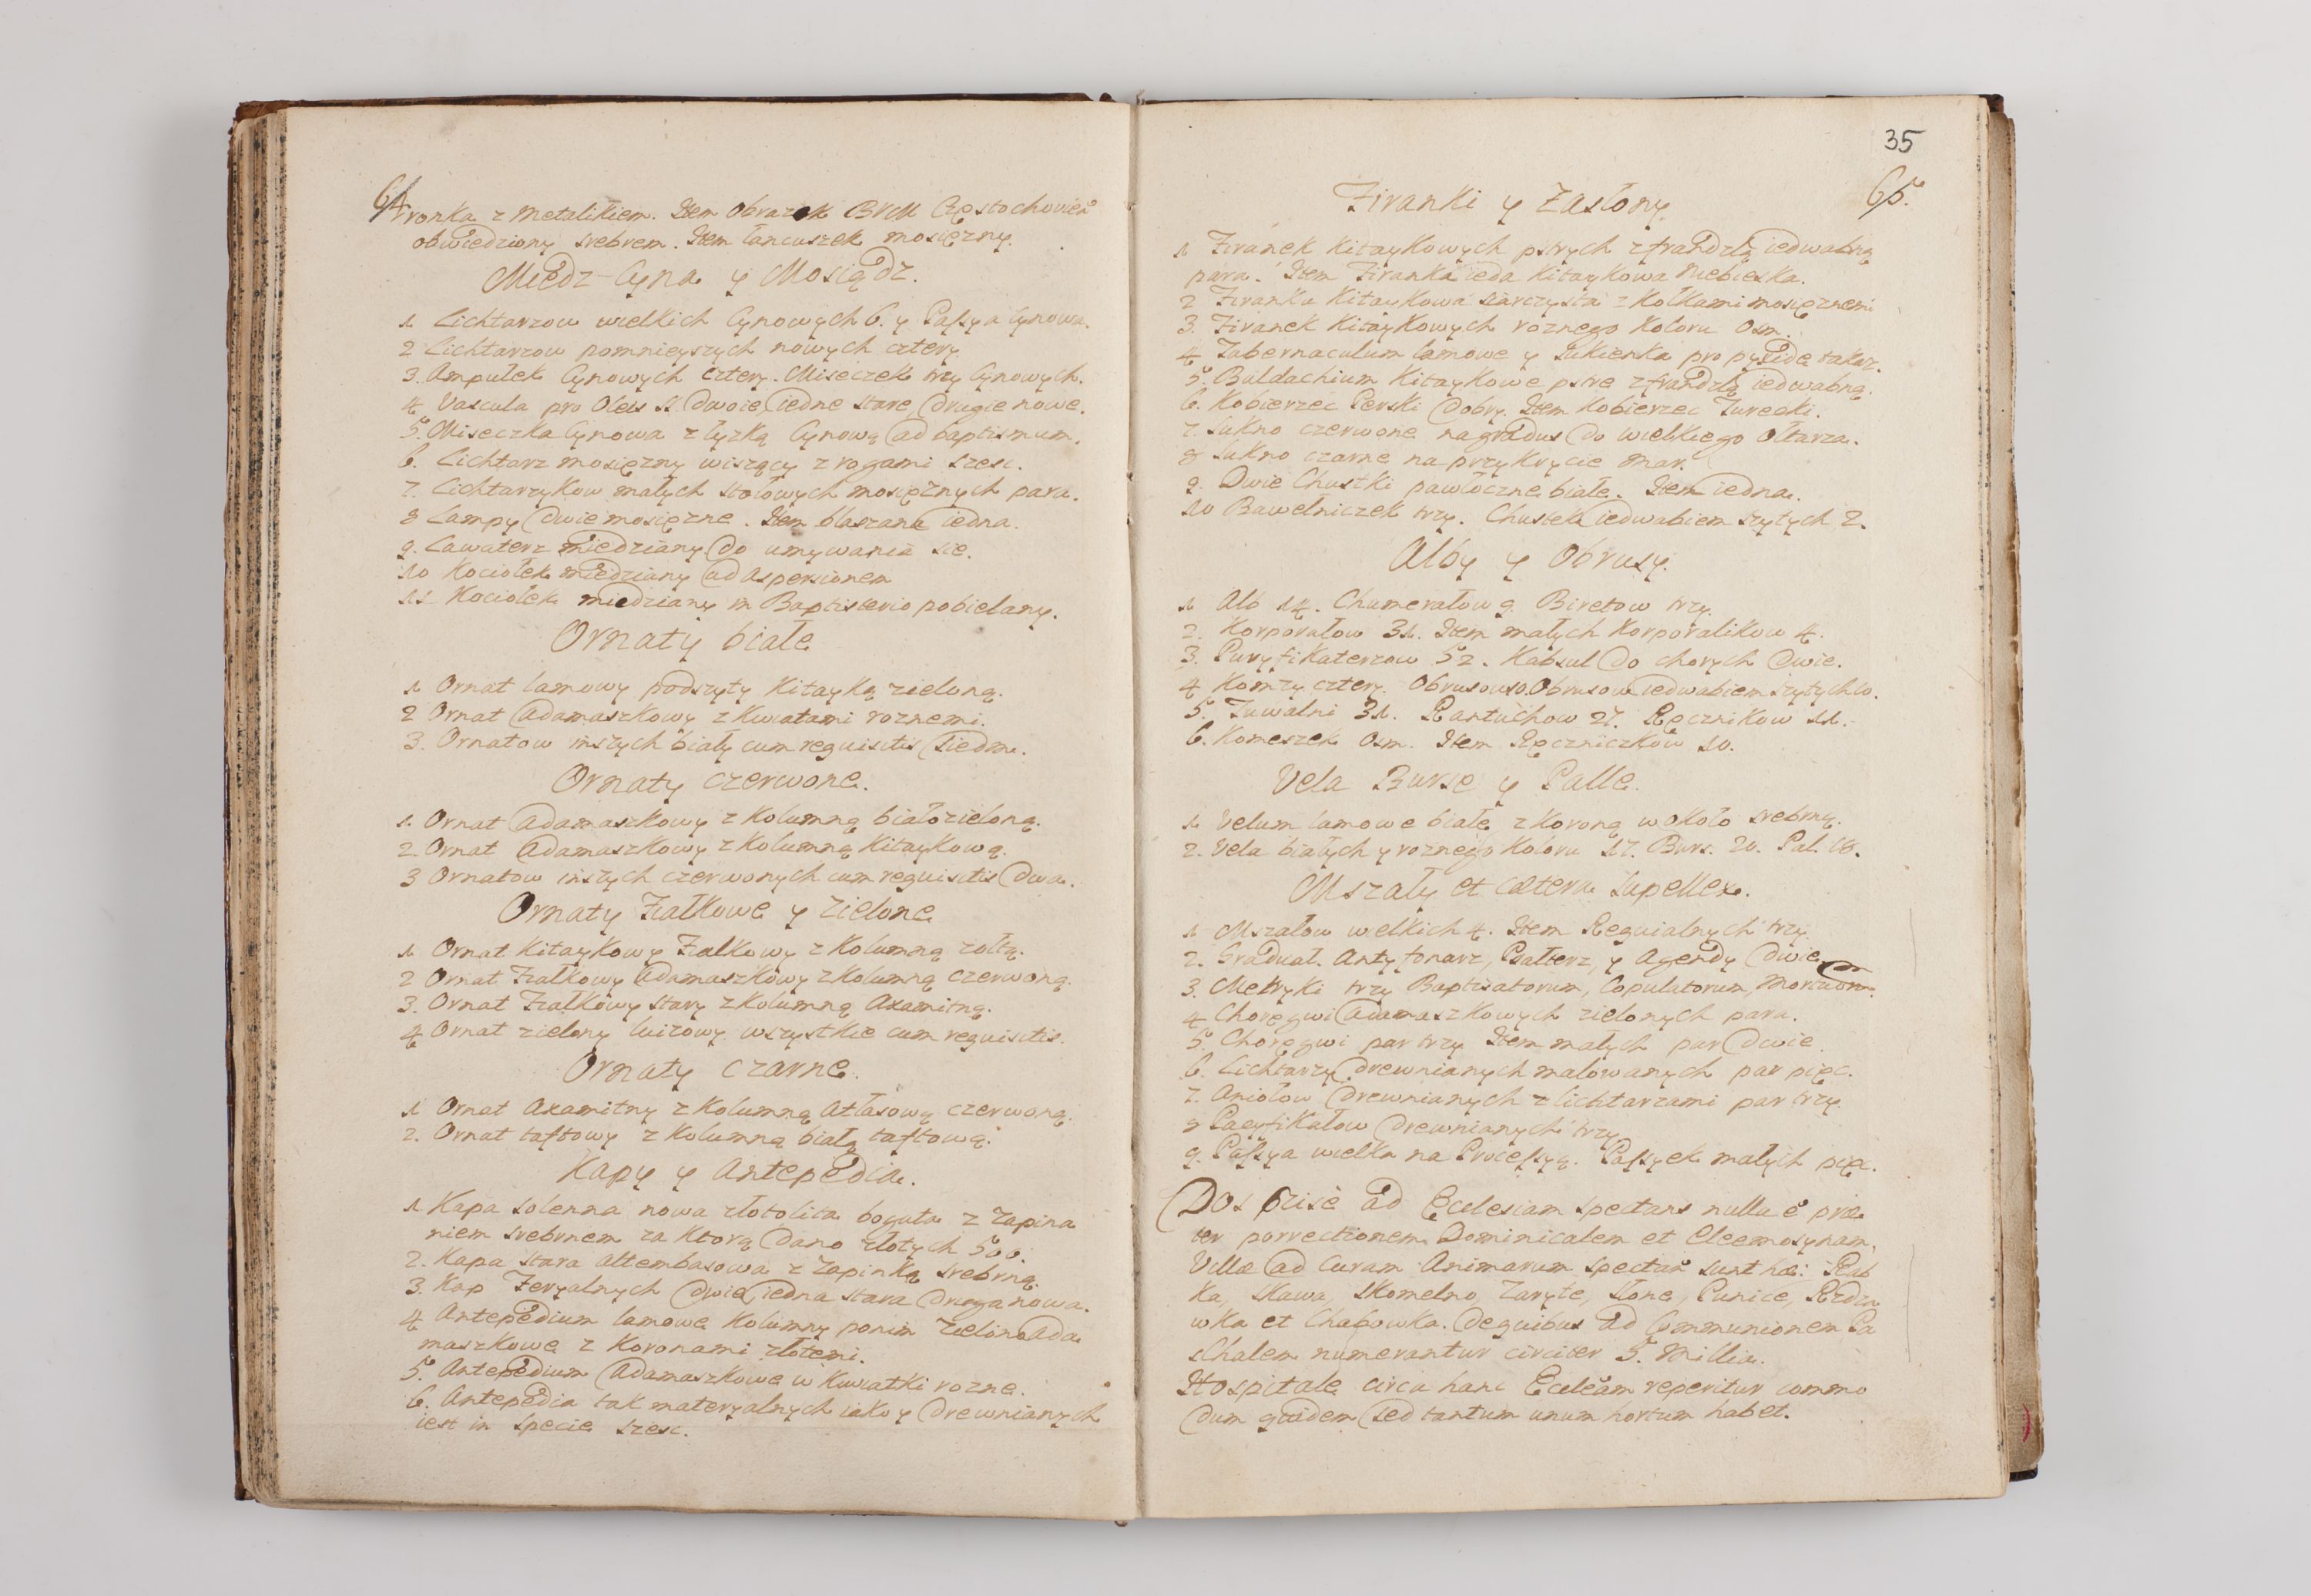 64
ronka z Metalikiem. Item Obrazek BVM Częstochowień
obwiedziony srebrem. Item łancuszek mosięzny.
Miedz-Cyna y Mosiądz.
1 Lichtarzow wielkich Cynowych 6. y Passya Cynowa.
2 Lichtarzow pomnieyszych nowych cztery
3. Ampułek Cynowych cztery. Miseczek trzy Cynowych.
4 Vascula pro Oleis SS. dwoie, iedne stare, drugie nowe.
5. Miseczka Cynowa z łyzką Cynową ad baptismum.
6. Lichtarz mosięzny wiszący z rogami szesc.
7. Lichtarzykow małych stołowych mosięznych para.
8 Lampy dwie mosięzne. Item blaszana iedna.
9. Lawaterz miedziany do umywania sie.
10 Kociołek miedziany ad aspersionem
11 Kociołek miedziany in Baptisterio pobielany.
Ornaty białe
1 Ornat lamowy podszyty Kitayką zieloną.
2 Ornat Adamaszkowy z Kwiatami roznemi.
3. Ornatow inszych biały cum requisitis siedm.
Ornaty czerwone.
1. Ornat Adamaszkowy z Kolumną białozieloną.
2. Ornat Adamaszkowy z Kolumną Kitaykową.
3 Ornatow inszych czerwonych cum requisitis dwa.
Ornaty Fiałkowe y Zielone
1 Ornat Kitaykowy Fiałkowy z Kolumną zołtą.
2 Ornat Fiałkowy Adamaszkowy z Kolumną czerwoną.
3. Ornat Fiałkowy stary z Kolumną Axamitną.
4 Ornat zielony wszystkie cum requisitis.
Ornaty czarne.
1 Ornat Axamitny z Kolumną Atłasową czerwoną.
2. Ornat taftowy z Kolumną białą taftową.
Kapy y Antepedia.
1 Kapa solenna nowa złotolita bogata z Zapina
niem srebrnem za Ktorą dano złotych 500.
2. Kapa stara altembasowa z Zapinką srebrną.
3. Kap Feryalnych dwie, iedna stara druga nowa.
4 Antepedium lamowe Kolumny ponim Zielono Ada
maszkowe z Koronami złotemi.
5. Antepedium Adamaszkowe w Kwiatki rozne.
6. Antepedia tak materyalnych iako y drewnianych
iest in specie szesc.
35
65.
Firanki y Zasłony
1 Firanek Kitaykowych pstrych z frandzlą iedwabną
para. Item Firanka ieda Kitaykowa Niebieska.
2 Firanka Kitaykowa siarczysta z Kołkami mosięznemi
3. Firanek Kitaykowych roznego Koloru Osm.
4 Tabernaculum lamowe y sukienka pro pyxide takaz.
5. Baldachium Kitaykowe pstre z frandzlą iedwabną.
6. Kobierzec Perski dobry. Item Kobierzec Turecki.
7. Sukno czerwone na gradus do wielkiego Ołtarza.
8 Sukno czarne na przykrycie Mar.
9. Dwie Chustki pawłoczne białe. Item iedna.
10 Bawelniczek trzy. Chustek iedwabiem szytych 2.
Alby y Obrusy.
1 Alb 14. Chumerałow 9. Biretow trzy.
2. Korporałow 31. Item małych Korporalikow 4.
3. Puryfikaterzow 52. Kabsul do chorych dwie.
4 Komzy cztery. Obrusow 50. Obrusow iedwabiem szytych 10.
5. Tuwalni 31. Rantuchow 27. Ręcznikow 11.
6. Komeszek Osm. Item Ręczniczkow 10.
Vela Burse y Palle.
1 Velum lamowe białe z Koroną wokoło srebrną.
2. Vela białych y roznego Koloru 17. Burs. 20. Pal. 18.
Mszały et cætera Supellex.
1 Mszałow welkich 4. Item Requialnych trzy
2. Graduał. Antyfonarz, Psałterz, y Agendy dwie
3. Metryki trzy Baptisatorum, Copulatorum, Mortuorum.
4 Choręgwi Adamaszkowych zielonych para.
5. Choręgwi par trzy Item małych par dwie.
6. Lichtarzy drewnianych malowanych par pięc.
7. Aniołow drewnianych z lichtarzami par trzy
8 Pacyfikałow drewnianych trzy
9. Passya wielka na Processyą. Passyek małych pięc.
Dos ad Ecclesiam spectans nulla ē præ
ter porrectionem Dominicalem et Eleemosynam.
Villæ ad Curam Animarum spectań sunt hæ: Rab
ka, Skawa, Skomelno, Zaryte, Słone, Punice, Rdza
wka et Chabowka. De quibus ad Communionem Pa
schalem numerantur circiter 5. Millia.
Hospitale circa hanc Ecclēam reperitur commo
dum quidem sed tantum unum hortum habet.